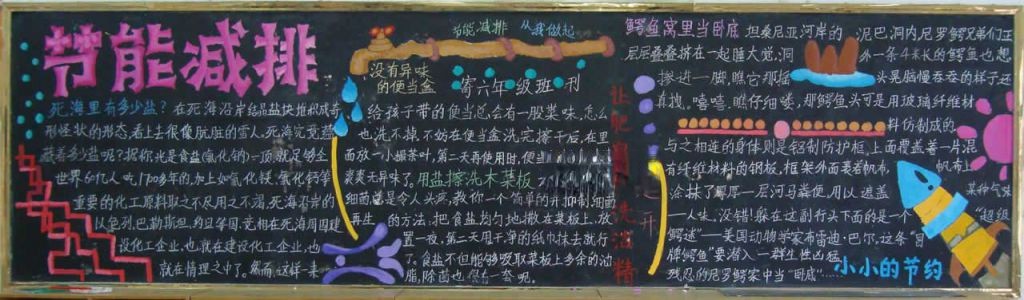 节能减排
死海里有多少盐？在死海沿岸结晶盐块堆积成奇
形怪状的形态，看上去很像肮脏的雪人。死海究竟蕴
藏着多少盐呢？据你光是食盐(氯化钠)一项，就足够全
世界60亿人吃1700多年的，加上如氯化镁、氯化钙等
重要的化工原料取之不尽用之不竭。死海沿岸的
以色列、巴勒斯坦、约旦等国，竞相在死海周围建
设化工企业，也就在建设化工企业，也
就在情理之中了。然而，这样一来
节能减排 从我做起
没有异味
的便当盒
寄六年级班刊
给孩子带的便当总会有一股菜味，怎么
也洗不掉，不妨在便当盒洗完擦干后，在里
面放一小撮茶叶，第二天再使用时，便当
爽爽无异味了。用盐擦洗木菜板
细菌总是令人头疼，教你一个简单的并抑制细菌
再生的方法，把食盐均匀地撒在菜板上，放
置一夜，第二天用干净的纸巾抹去就行
了。食盐不但能够吸取菜板上多余的油
脂，除菌也很有一套呢。
让肥皂洗洁精
走开
鳄鱼窝里当卧底 坦桑尼亚河岸的泥巴洞内尼罗鳄兄弟们正
层层叠叠挤在一起睡大觉，洞外一条4米长的鳄鱼也想
掺进一脚，瞧它那摇头晃脑慢吞吞的样子还
真拽，嘻嘻，瞧仔细喽，那鳄鱼头可是用玻璃纤维材
料仿制成的，
与之相连的身体则是铝制防护框，上面覆盖着一片混
有纤维材料的钢板，框架外面裹着帆布，帆布上
涂抹了厚厚一层河马粪便，用以遮盖某种气味
——人味，没错！躲在这副行头下面的是一个“超级
鳄迷”——美国动物学家布雷迪·巴尔，这条“冒
牌鳄鱼”要潜入一群生性凶猛
残忍的尼罗鳄家中当“卧底”……
小小的节约